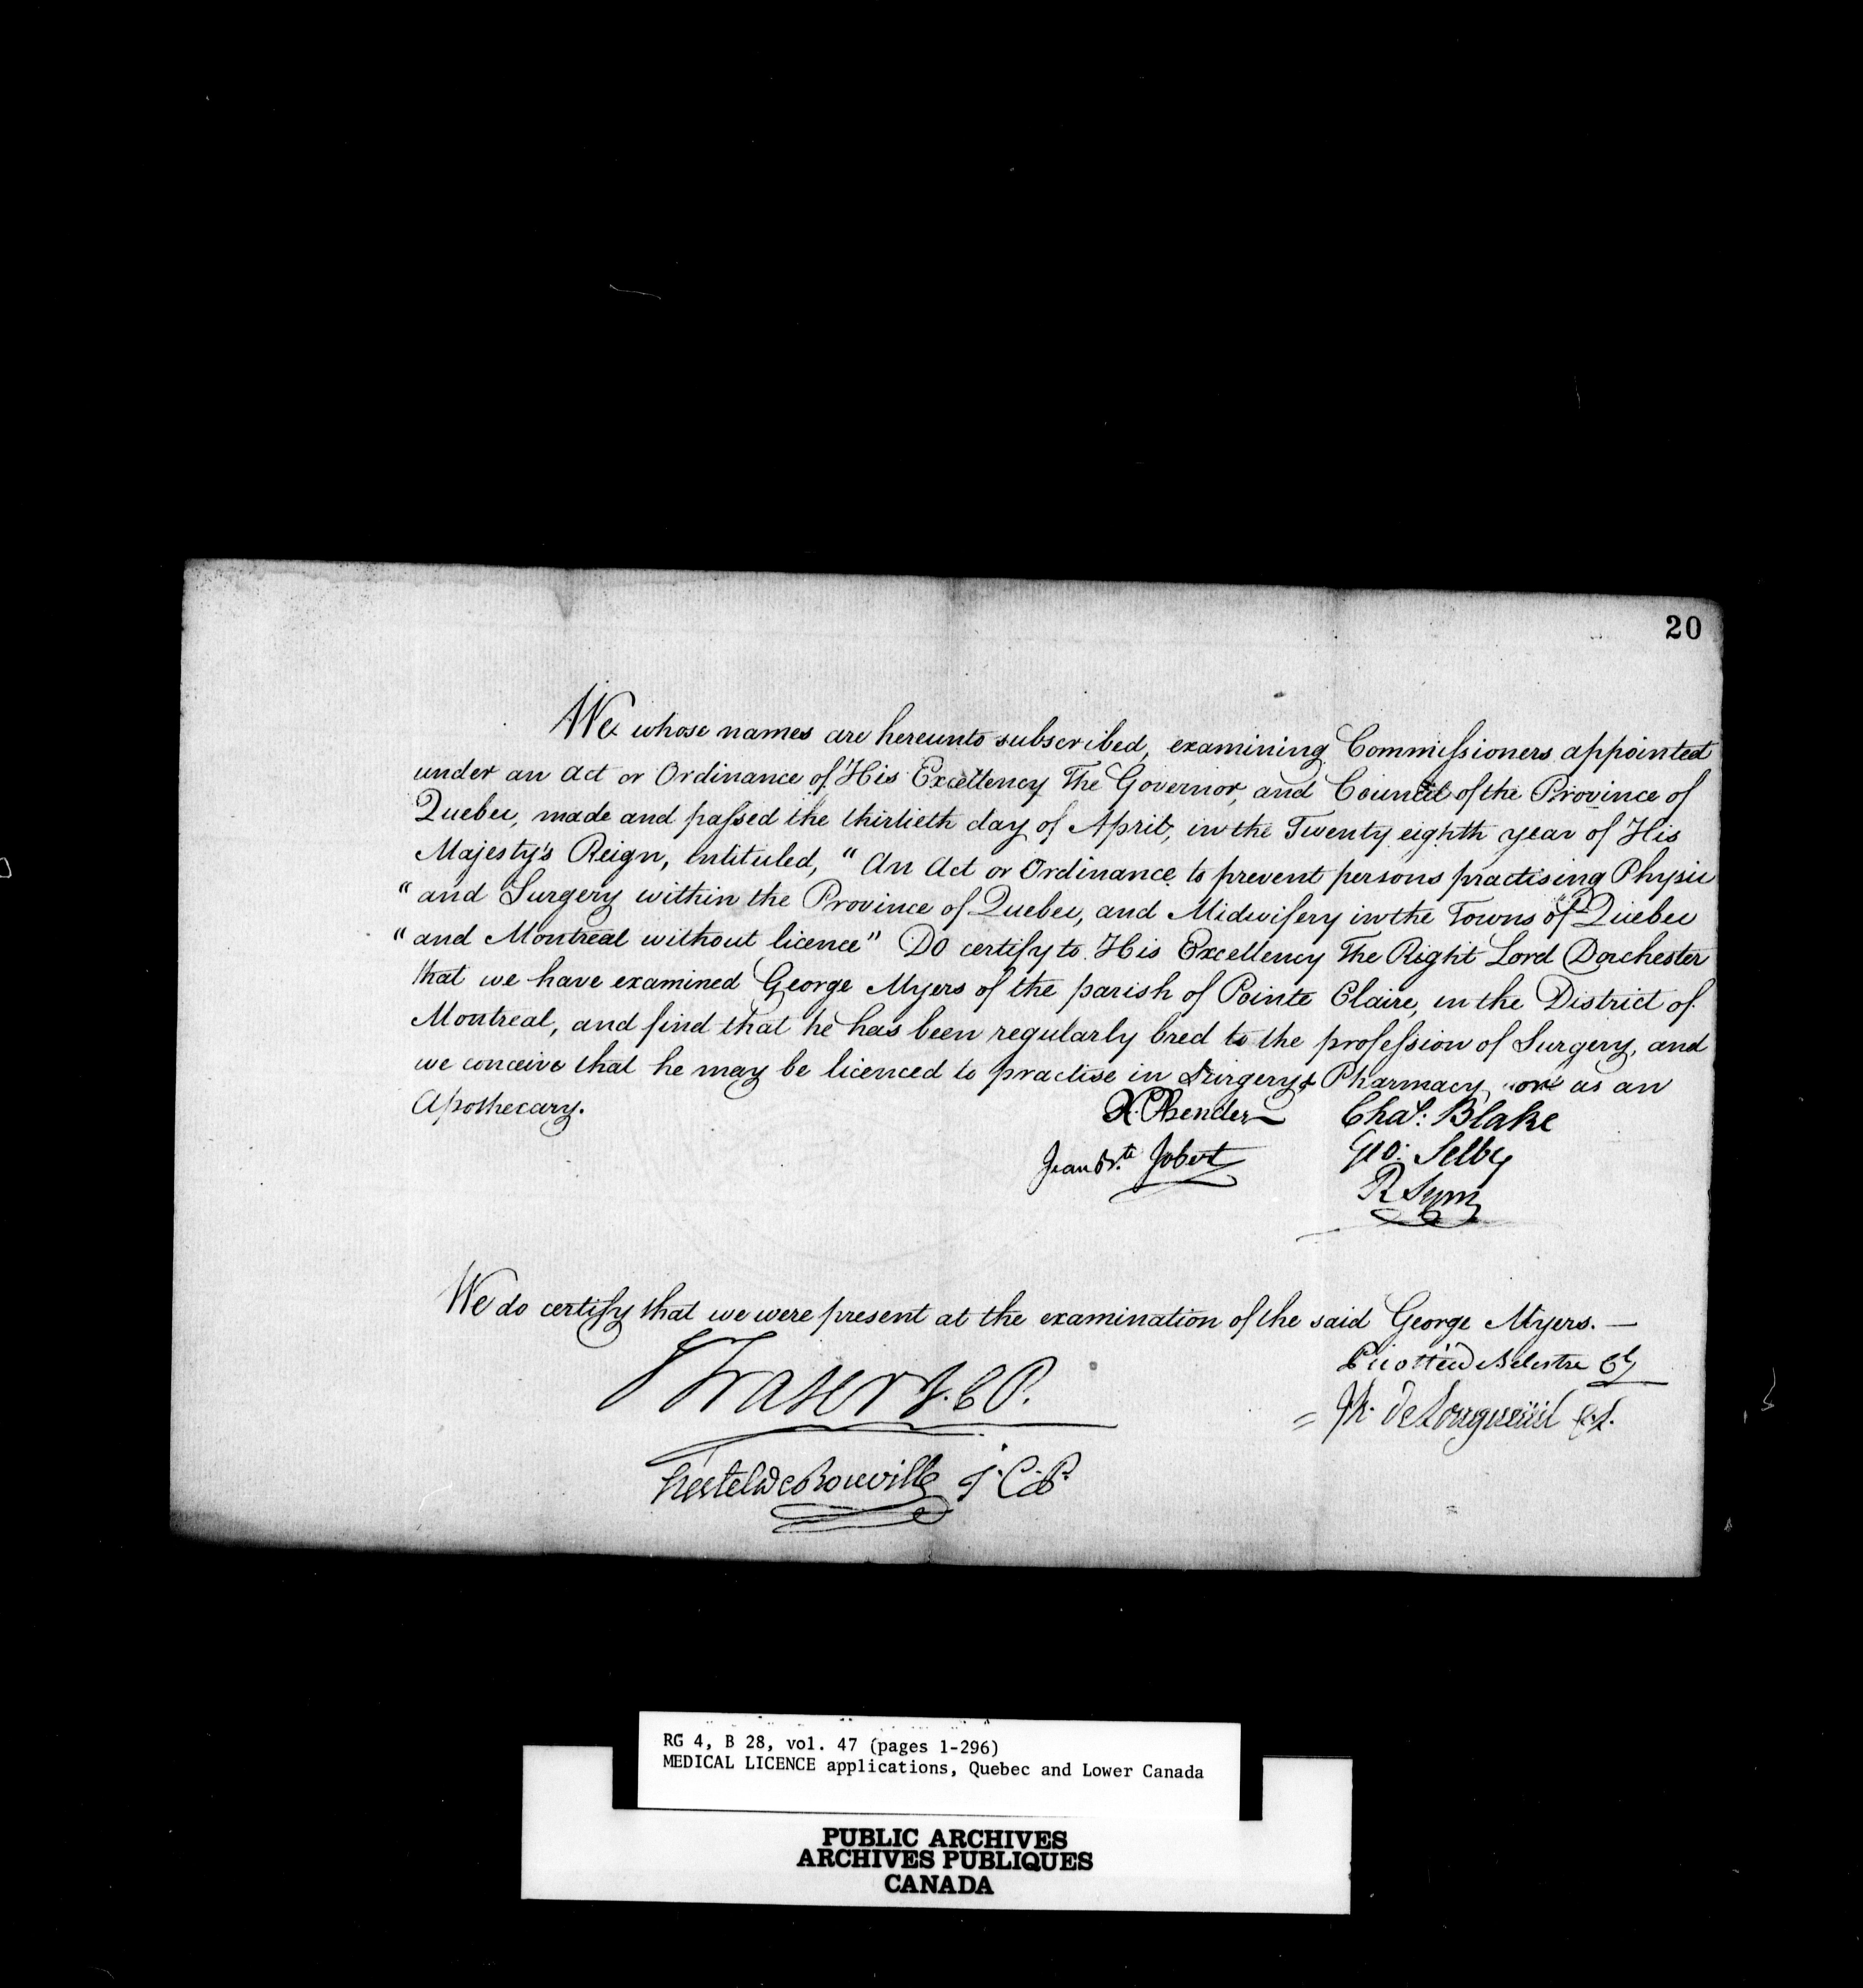 20
We whose names are hereunto subscribed, examining Commissioners appointed
under an Act or Ordinance of His Excellency The Governor, and Council of the Province of
Quebec, made and passed the thirtieth day of April, in the Twenty eighth year of His
Majesty's Reign, intituled, "An Act or Ordinance to prevent persons practising Physic
"and Surgery within the Province of Quebec, and Midwifery in the Towns of Quebec
"and Montreal without licence" Do certify to His Excellency The Right Lord Dorchester
that we have examined George Myers of the parish of Pointe Claire, in the District of
Montreal, and find that he has been regularly bred to the profession of Surgery, and
we conceive that he may be licenced to practise in Surgery & Pharmacy or as an
Apothecary.
Chas. Blake
Jean Bte. Jobert
Geo: Selby
R Sym
We do certify that we were present at the examination of the said George Myers. —
Picotté de Belestre
Fraser J.C.P.
De Longueüil
Hertel De Rouville J.C.P.
RG 4, B 28, vol. 47 (pages 1-296)
MEDICAL LICENCE applications, Quebec and Lower Canada
PUBLIC ARCHIVES
ARCHIVES PUBLIQUES
CANADA